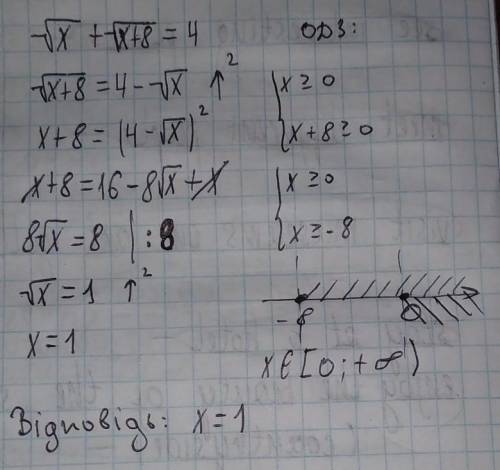 √x + √x+8 = 4
√x+8 = 4 - √x ↑²
x+8 = (4-√x)²
x+8 = 16 - 8√x + x
8√x = 8 | : 8
√x = 1 ↑²
x = 1
ОДЗ:
{ x ≥ 0
x+8 ≥ 0
{ x ≥ 0
x ≥ -8
-8 0
x ∈ [0; +∞)
Відповідь: x = 1